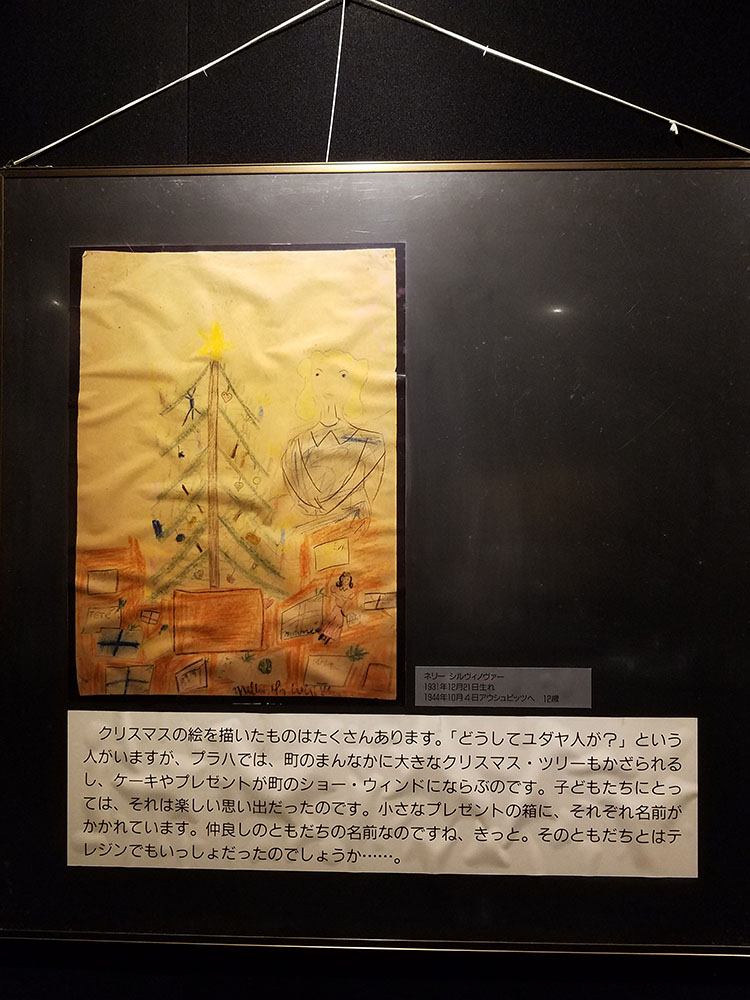 ネリー シルヴィノヴァー
1931年12月21日生れ
1944年10月4日アウシュビッツへ 12歳
クリスマスの絵を描いたものはたくさんあります。「どうしてユダヤ人が?」という
人がいますが、プラハでは、町のまんなかに大きなクリスマス・ツリーもかざられる
し、ケーキやプレゼントが町のショー・ウィンドにならぶのです。子どもたちにとっ
ては、それは楽しい思い出だったのです。小さなプレゼントの箱に、それぞれ名前が
かかれています。仲良しのともだちの名前なのですね、きっと。そのともだちとはテ
レジンでもいっしょだったのでしょうか……。